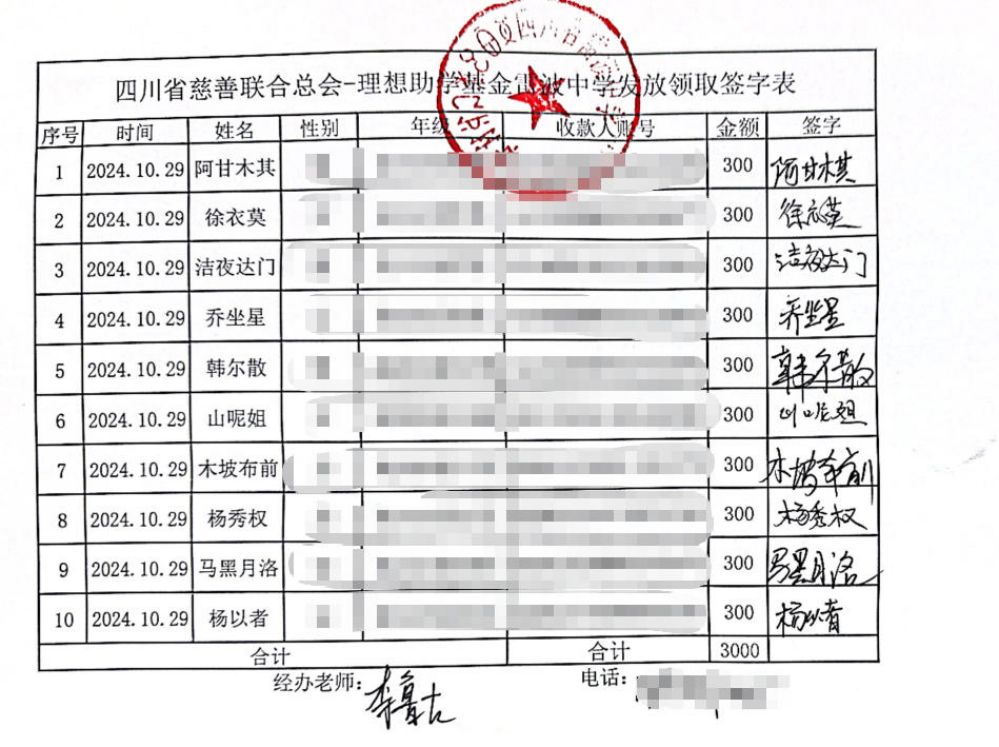 四川省慈善联合总会-理想助学基金雷波中学发放领取签字表
序号 时间 姓名 性别 年级 收款人账号 金额 签字
1 2024.10.29 阿甘木其 300 阿甘木其
2 2024.10.29 徐衣莫 300 徐衣莫
3 2024.10.29 洁夜达门 300 洁夜达门
4 2024.10.29 乔坐星 300 乔坐星
5 2024.10.29 韩尔散 300 韩尔散
6 2024.10.29 山呢姐 300 山呢姐
7 2024.10.29 木坡布前 300 木坡布前
8 2024.10.29 杨秀权 300 杨秀权
9 2024.10.29 马黑月洛 300 马黑月洛
10 2024.10.29 杨以者 300 杨以者
合计 合计 3000
经办老师： 电话：